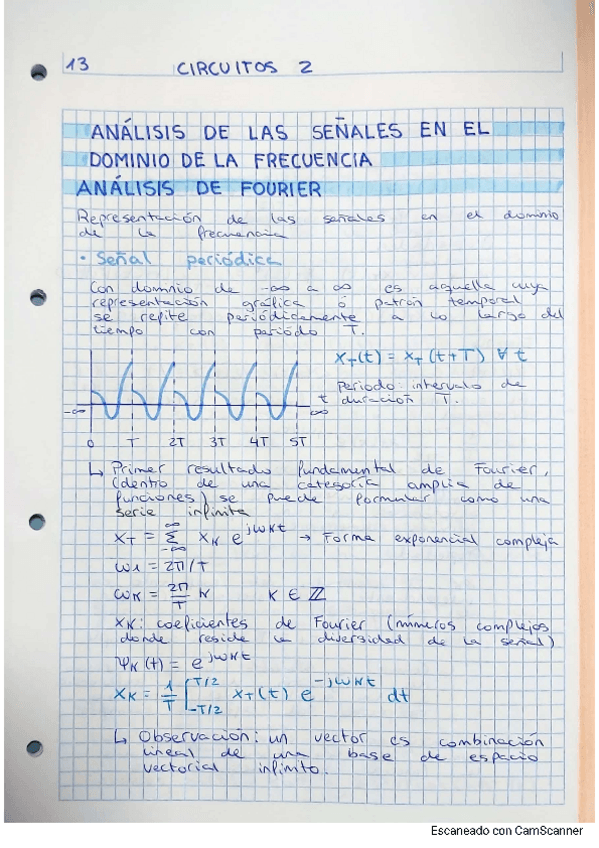 13 CIRCUITOS 2
ANÁLISIS DE LAS SEÑALES EN EL
DOMINIO DE LA FRECUENCIA
ANÁLISIS DE FOURIER
Representación de las señales en el dominio
de la frecuencia
• Señal periódica
Con dominio de -∞ a ∞ es aquella cuya
representación gráfica ó patrón temporal
se repite periódicamente a lo largo del
tiempo con periódo T.
x_T(t) = x_T (t+T) ∀ t
Periodo: intervalo de
duración T.
-∞ t ∞
0 T 2T 3T 4T 5T
↳ Primer resultado fundamental de Fourier,
(dentro de una categoría amplia de
funciones) se puede formular como una
serie infinita
x_T = Σ_{-∞}^{∞} x_K e^{jωKt} → Forma exponencial compleja
ω1 = 2π/T
ω_K = 2π/T K K ∈ ℤ
x_K: coeficientes de Fourier (números complejos
donde reside la diversidad de la señal)
Ψ_K (t) = e^{jωKt}
x_K = 1/T ∫_{-T/2}^{T/2} x_T(t) e^{-jωKt} dt
↳ Observación: un vector es combinación
lineal de una base de espacio
vectorial infinito.
Escaneado con CamScanner